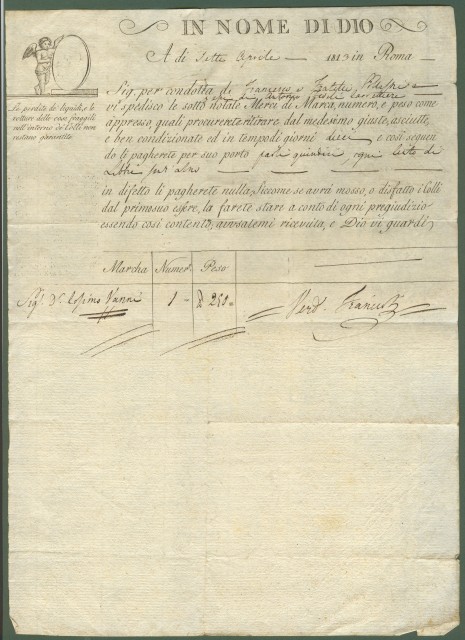 IN NOME DI DIO
A di Sette Aprile 1813 in Roma
Le perdite de liquidi, e le
rotture delle cose fragili
nell'interno de Colli non
restano garantite
Sig. per condotta di Francesco e
vi spedisco le sotto notate Merci di Marca, numero, e peso come
appresso, quali procurerete ritirare dal medesimo giuste, asciutte,
e ben condizionate ed in tempo di giorni dieci e così seguen
do li pagherete per suo porto paoli quindici ogni cento di
Libbre per
in difetto li pagherete nulla. Siccome se avrà mosso, o disfatto i Colli
dal primo suo essere, la farete stare a conto di ogni pregiudizio
essendo così contento, avvisatemi ricevuta, e Dio vi guardi
Marcha Numer. Peso
Sig. Vanni 1 251 Ferd.